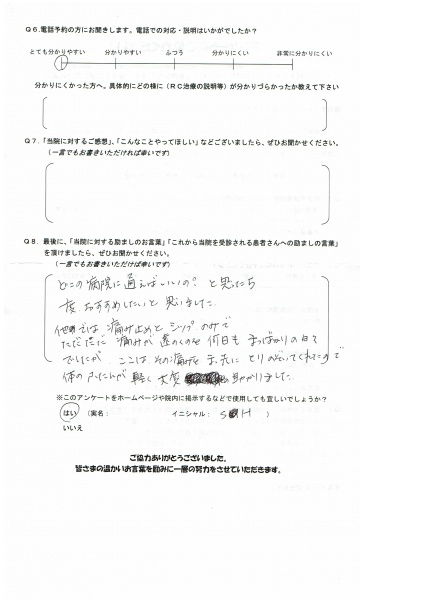 Q6.電話予約の方にお聞きします。電話での対応・説明はいかがでしたか？
とても分かりやすい 分かりやすい ふつう 分かりにくい 非常に分かりにくい
分かりにくかった方へ。具体的にどの様に（RC治療の説明等）が分かりづらかったか教えて下さい
Q7.「当院に対するご感想」、「こんなことやってほしい」などございましたら、ぜひお聞かせください。
（一言でもお書きいただければ幸いです）
Q8. 最後に、「当院に対する励ましのお言葉」「これから当院を受診される患者さんへの励ましの言葉」
を頂けましたら、ぜひお聞かせください。
（一言でもお書きいただけば幸いです）
どこの病院に通えばいいの？と思ったら
一度おすすめしたいと思いました。
他では痛み止めとシップのみで
ただただ痛みが遠のくのを何日もまつばかりの日々
でしたが ここは、その痛みをまっ先にとりのぞいてくれたので
体のふたんが軽く大変 助かりました
※このアンケートをホームページや院内に掲示するなどで使用しても宜しいでしょうか？
はい （実名： イニシャル： S H ）
いいえ
ご協力ありがとうございました。
皆さまの温かいお言葉を励みに一層の努力をさせていただきます。